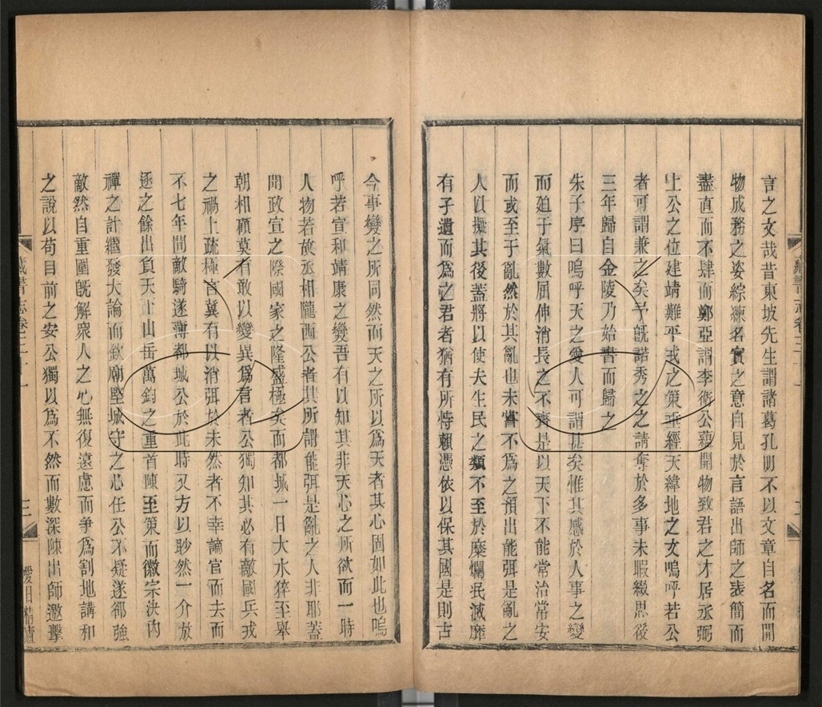 言之文哉昔東坡先生謂諸葛孔明不以文章自名而開
物成務之姿綜練名實之意自見於言語出師之表簡而
盡直而不肆而鄭亞謂李衛公蘊開物致君之才居丞弼
上公之位建靖難平戎之策垂經天緯地之文嗚呼若公
者可謂兼之矣予旣諾秀之之請奪於多事未暇綴思後
三年歸自金陵乃始書而歸之
朱子序曰嗚呼天之愛人可謂甚矣惟其感於人事之變
而廹于氣數屈伸消長之不齊是以天下不能常治常安
而或至于亂然於其亂也未嘗不爲之預出能弭是亂之
人以擬其後蓋將以使夫生民之類不至於糜爛泯滅靡
有孑遺而爲之君者猶有所恃賴憑依以保其國是則古
今事變之所同然而天之所以爲天者其心固如此也嗚
呼若宣和靖康之變吾有以知其非天心之所欲而一時
人物若故丞相隴西公者其所謂能弭是亂之人非耶蓋
聞政宣之際國家之隆盛極矣而都城一日大水猝至舉
朝相顧莫有敢以變異爲言者公獨知其必有敵國兵戎
之禍上疏極言冀有以消弭於未然者不幸謫官而去而
不七年間敵騎遂薄都城公於此時又方以眇然一介放
逐之餘出負天下山岳萬鈞之重首陳至策而徽宗決內
禪之計繼發大論而欽廟堅城守之心任公不疑遂郤強
敵然自重圍旣解衆人之心無復遠慮而爭爲割地講和
之說以苟目前之安公獨以爲不然而數深陳出師邀擊
藏書志卷三十一
三